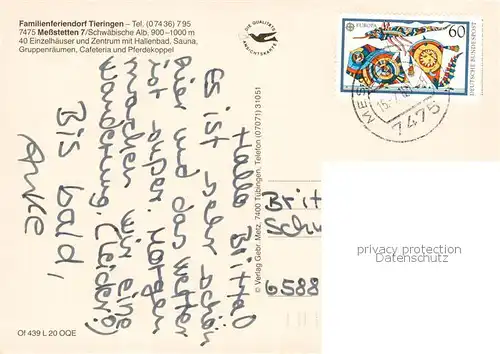 Familienferiendorf Tieringen – Tel. (0 74 36) 7 95
7475 Meßstetten 7/Schwäbische Alb, 900–1000 m
40 Einzelhäuser und Zentrum mit Hallenbad, Sauna,
Gruppenräumen, Cafeteria und Pferdekoppel
DIE QUALITÄTS
ANSICHTSKARTE
EUROPA
60
DEUTSCHE BUNDESPOST
MESS
7475
Hallo Britta!
Es ist sehr schön
hier und das Wetter
ist super. Morgen
machen wir eine
Wanderung. (Leider?)
Bis bald,
Anke
© Verlag Gebr. Metz, 7400 Tübingen, Telefon (07071) 31051
Brit
Schw
6588
privacy protection
Datenschutz
Of 439 L 20 OQE